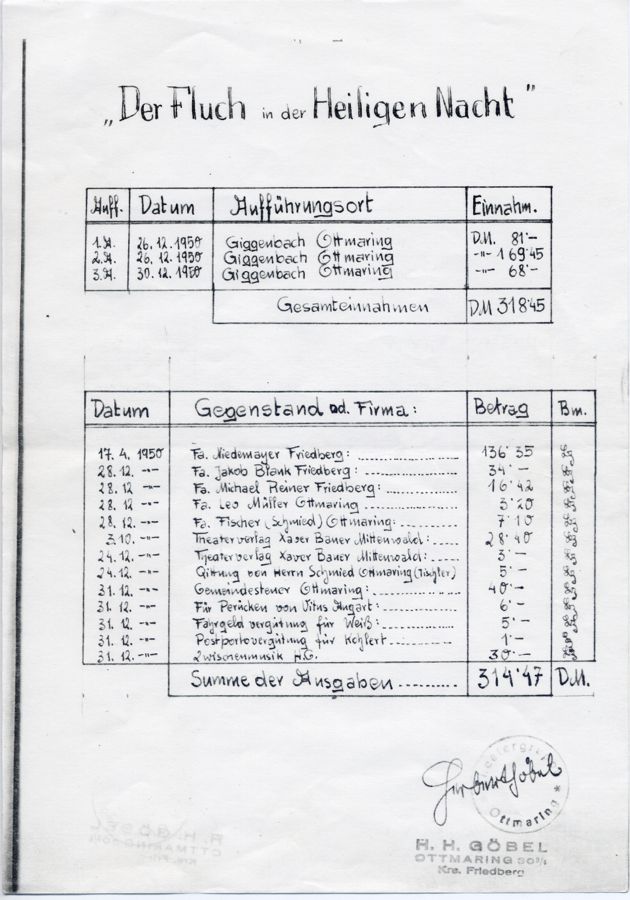 „Der Fluch in der Heiligen Nacht"
Auff. Datum Aufführungsort Einnahm.
1.A. 26.12.1950 Giggenbach Ottmaring D.M. 81'-
2.A. 26.12.1950 Giggenbach Ottmaring -"- 169'45
3.A. 30.12.1950 Giggenbach Ottmaring -"- 68'-
Gesamteinnahmen D.M 318'45
Datum Gegenstand od. Firma: Betrag Bm.
17. 4. 1950 Fa. Niedemayer Friedberg: 136'35
28. 12. -"- Fa. Jakob Blank Friedberg: 34'-
28. 12 -"- Fa. Michael Reiner Friedberg: 16'42
28. 12 -"- Fa. Leo Müller Ottmaring 3'20
28. 12. -"- Fa. Fischer (Schmied) Ottmaring: 7'10
3.10. -"- Theaterverlag Xaver Bauer Mittenwald: 28'40
24.12. -"- Theaterverlag Xaver Bauer Mittenwald: 3'-
24.12. -"- Qittung von Herrn Schmied Ottmaring (Tischler) 5'-
31. 12. -"- Gemeindesteuer Ottmaring: 40'-
31. 12. -"- Für Perücken von Vitus Angart: 6'-
31. 12. -"- Fahrgeld vergütung für Weiß: 5'-
31. 12. -"- Postportovergütung für Kohlert 1'-
31. 12. -"- Zwischenmusik H.G. 30'-
Summe der Ausgaben 314'47 D.M.
Herbert Göbel
Ottmaring *
H. H. GÖBEL
OTTMARING 30⅓
Krs. Friedberg